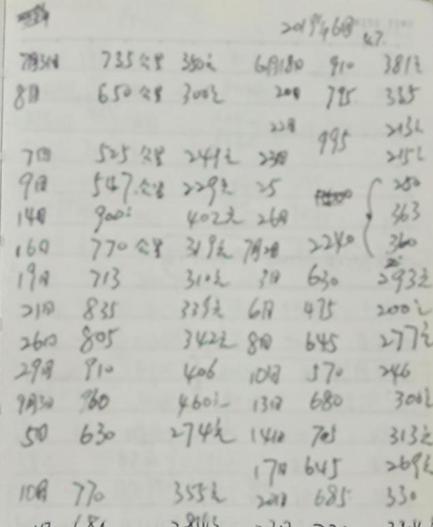 2019年6月
7月3日 735公里 350元 6月18日 910 381元
8日 650公里 300元 20日 795 335
22日 995 213元
7日 525公里 249元 23日 215元
9日 547公里 229元 25 250
14日 900 402元 26日 363
16日 770公里 319元 7月2日 2240 360
19日 713 310元 3日 630 293元
21日 835 339元 6日 475 200元
26日 805 342元 8日 645 277元
29日 910 406 10日 570 246
9月3日 960 460元 13日 680 300元
5日 630 274元 14日 705 313元
17日 645 269元
10日 770 355元 20日 685 330